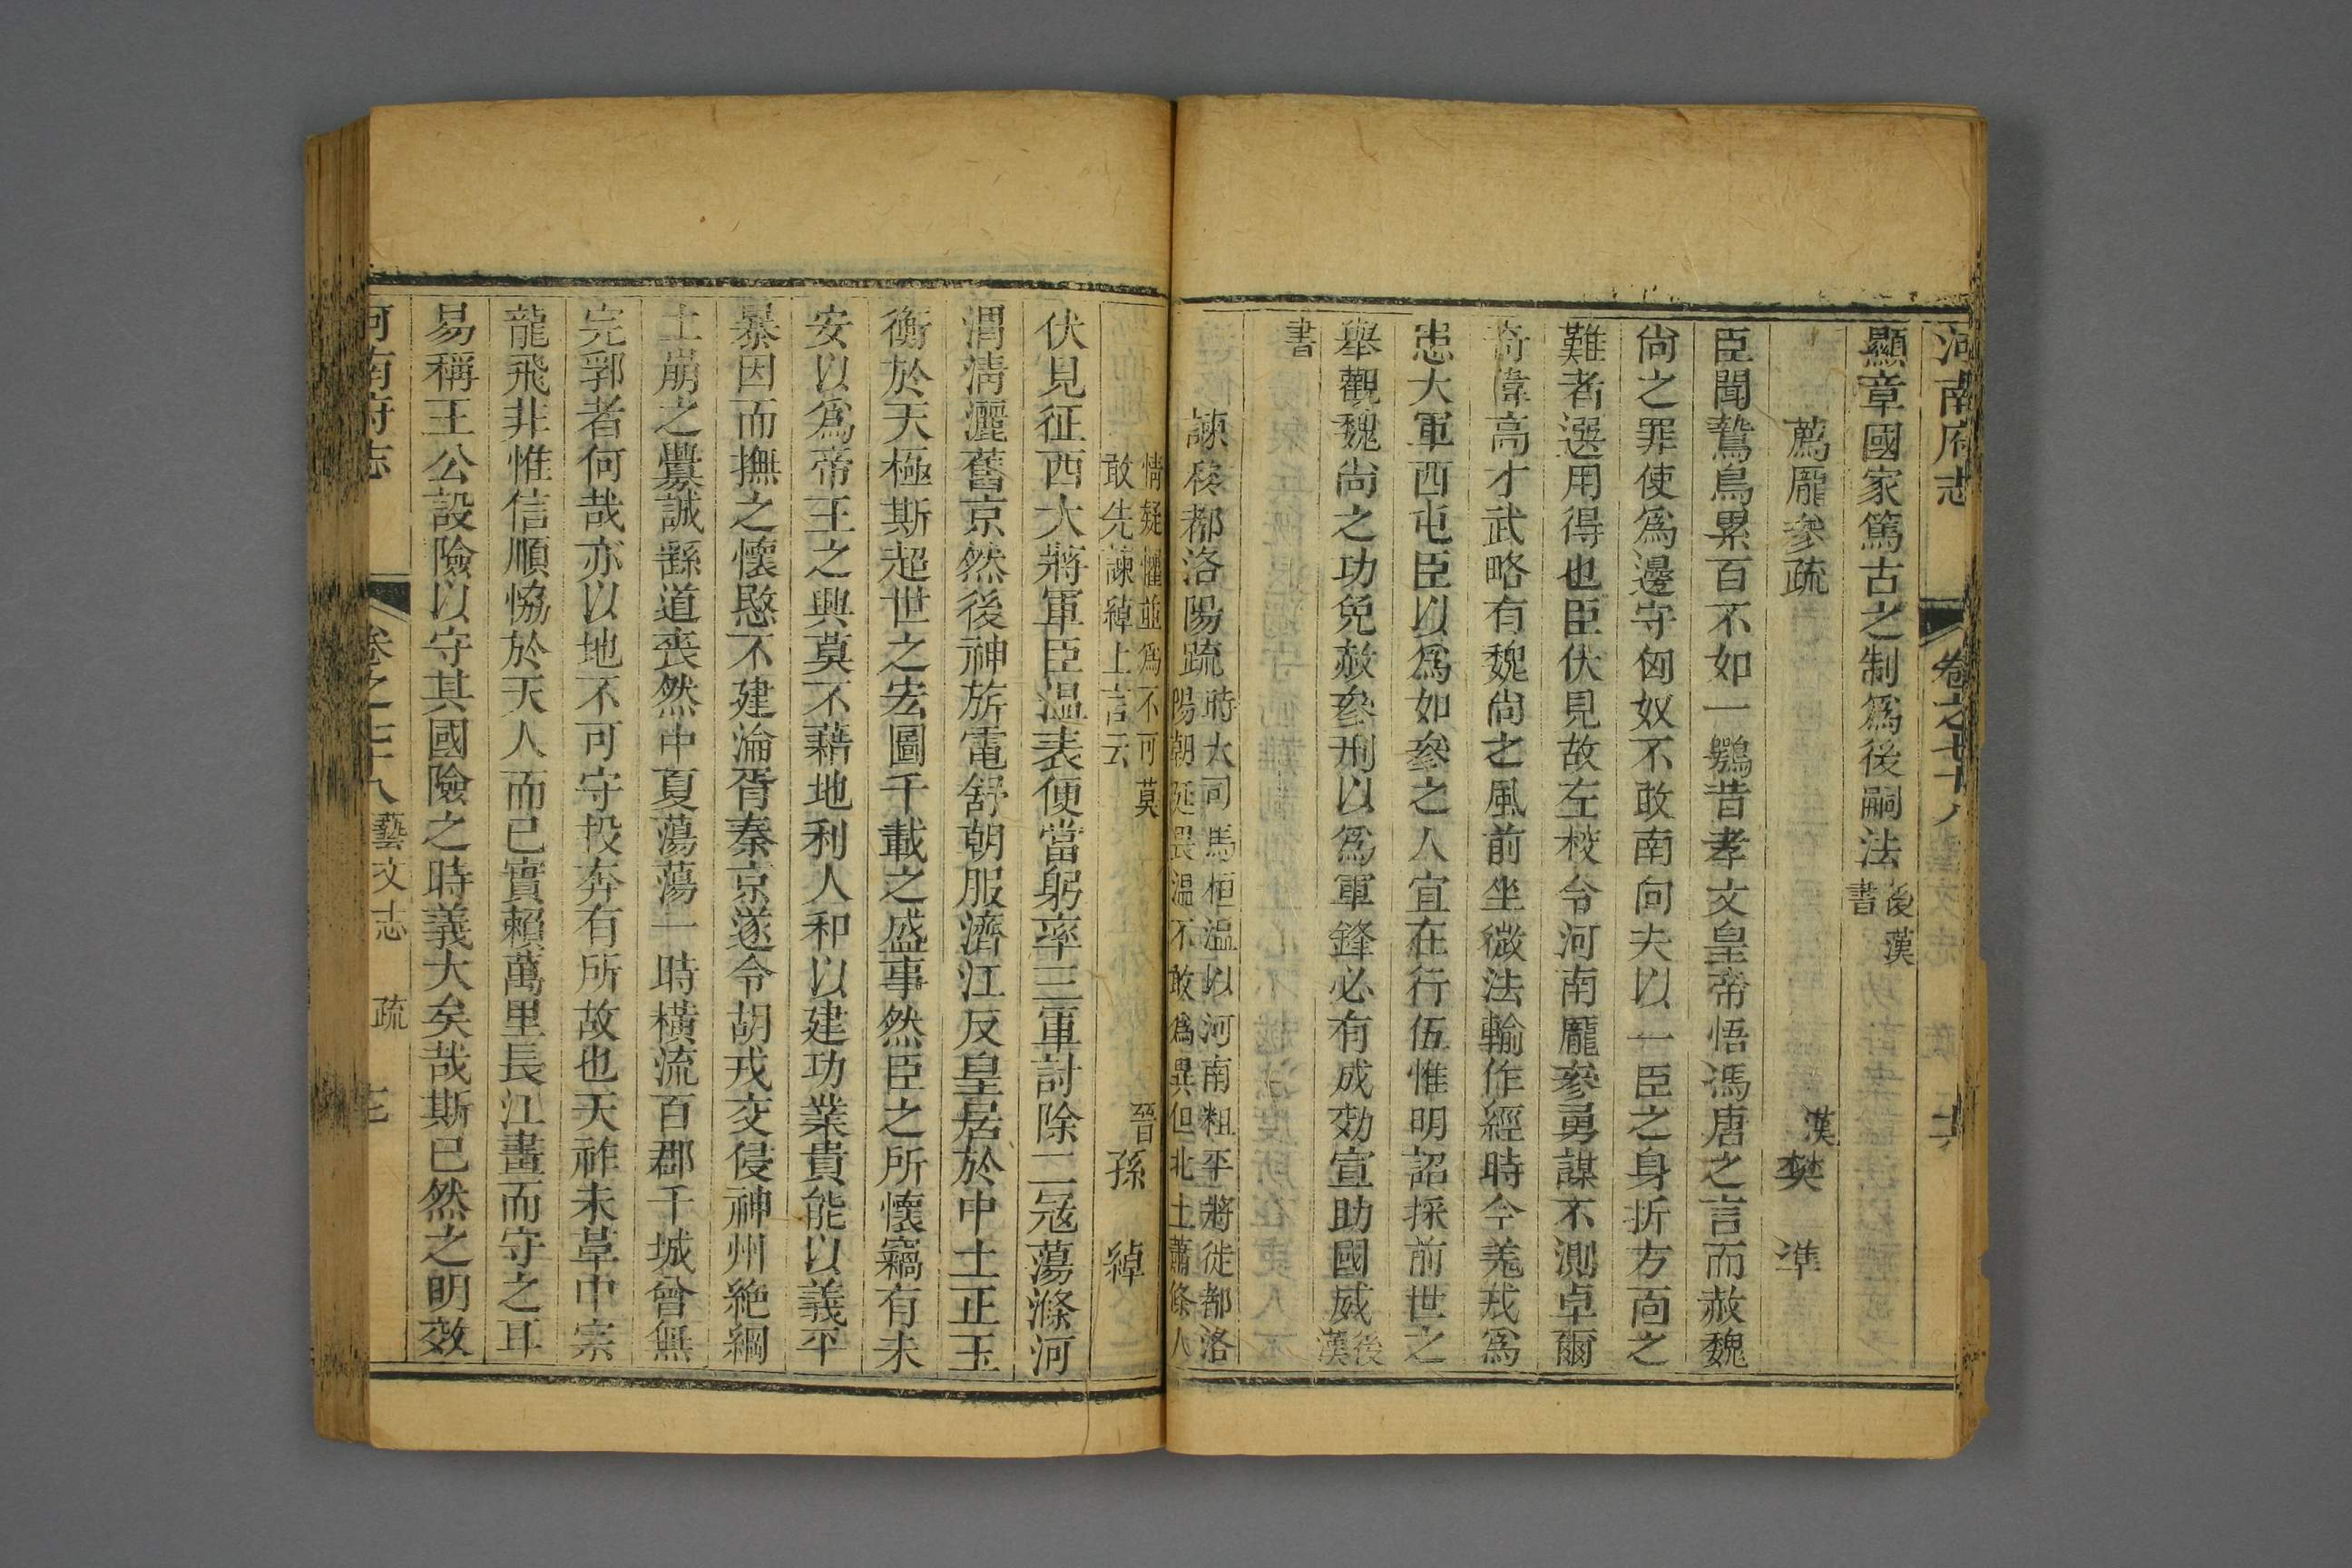 河南府志 卷之七十八
顯章國家篤古之制爲後嗣法後漢書
薦龐參疏 漢 樊準
臣聞鷙鳥累百不如一鶚昔孝文皇帝悟馮唐之言而赦魏
尙之罪使爲邊守匈奴不敢南向夫以一臣之身折方面之
難者選用得也臣伏見故左校令河南龐參勇謀不測卓爾
奇偉高才武略有魏尙之風前坐微法輸作經時今羗戎爲
患大軍西屯臣以爲如參之人宜在行伍惟明詔採前世之
舉觀魏尙之功免赦參刑以爲軍鋒必有成効宣助國威後漢
書
諫移都洛陽疏時大司馬桓溫以河南粗平將徙都洛
陽朝廷畏溫不敢爲異但北土蕭條人
情疑懼並爲不可莫
敢先諫綽上言云 晉 孫綽
伏見征西大將軍臣溫表便當躬率三軍討除二冦蕩滌河
渭淸灑舊京然後神旂電舒朝服濟江反皇居於中土正玉
衡於天極斯超世之宏圖千載之盛事然臣之所懷竊有未
安以爲帝王之興莫不藉地利人和以建功業貴能以義平
暴因而撫之懷愍不建淪胥秦京遂令胡戎交侵神州絶綱
土崩之釁誠繇道喪然中夏蕩蕩一時橫流百郡千城曾無
完郛者何哉亦以地不可守投奔有所故也天祚未革中宗
龍飛非惟信順恊於天人而已實賴萬里長江畫而守之耳
易稱王公設險以守其國險之時義大矣哉斯已然之明效
河南府志 卷之七十八 藝文志 疏